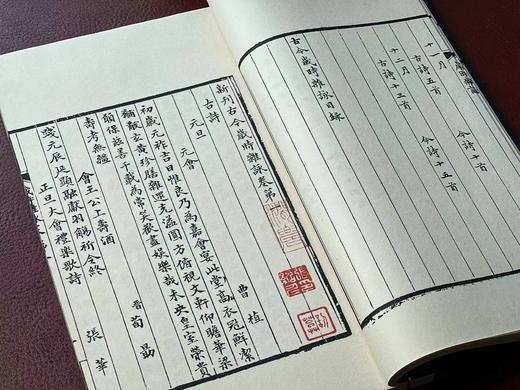 十一月
古詩五首 今詩十首
十二月
古詩十三首 今詩十五首
古今歲時雜詠目錄
新刊古今歲時雜詠卷第
古詩
元旦 元會 曹植
初歲元祚吉日惟良乃為嘉會宴此堂高衣冠鮮潔
黼黻玄黃珍膳雜遝充溢圓方俯視文軒仰瞻華梁
願保茲善千載為常笑歌盡娛樂哉未央皇室榮貴
壽考無疆
會王公上壽酒 晉荀勗
踐元辰延顯融獻羽觴祈令終
正旦大會禮樂歌詩 張華